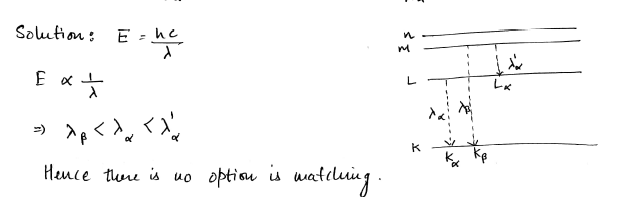 Solution: E = hc/λ
E ∝ 1/λ
⇒ λβ < λα < λ'α
Hence there is no option is matching.
n
M
λ'α
L
Lα
λα
λβ
K
Kα
Kβ